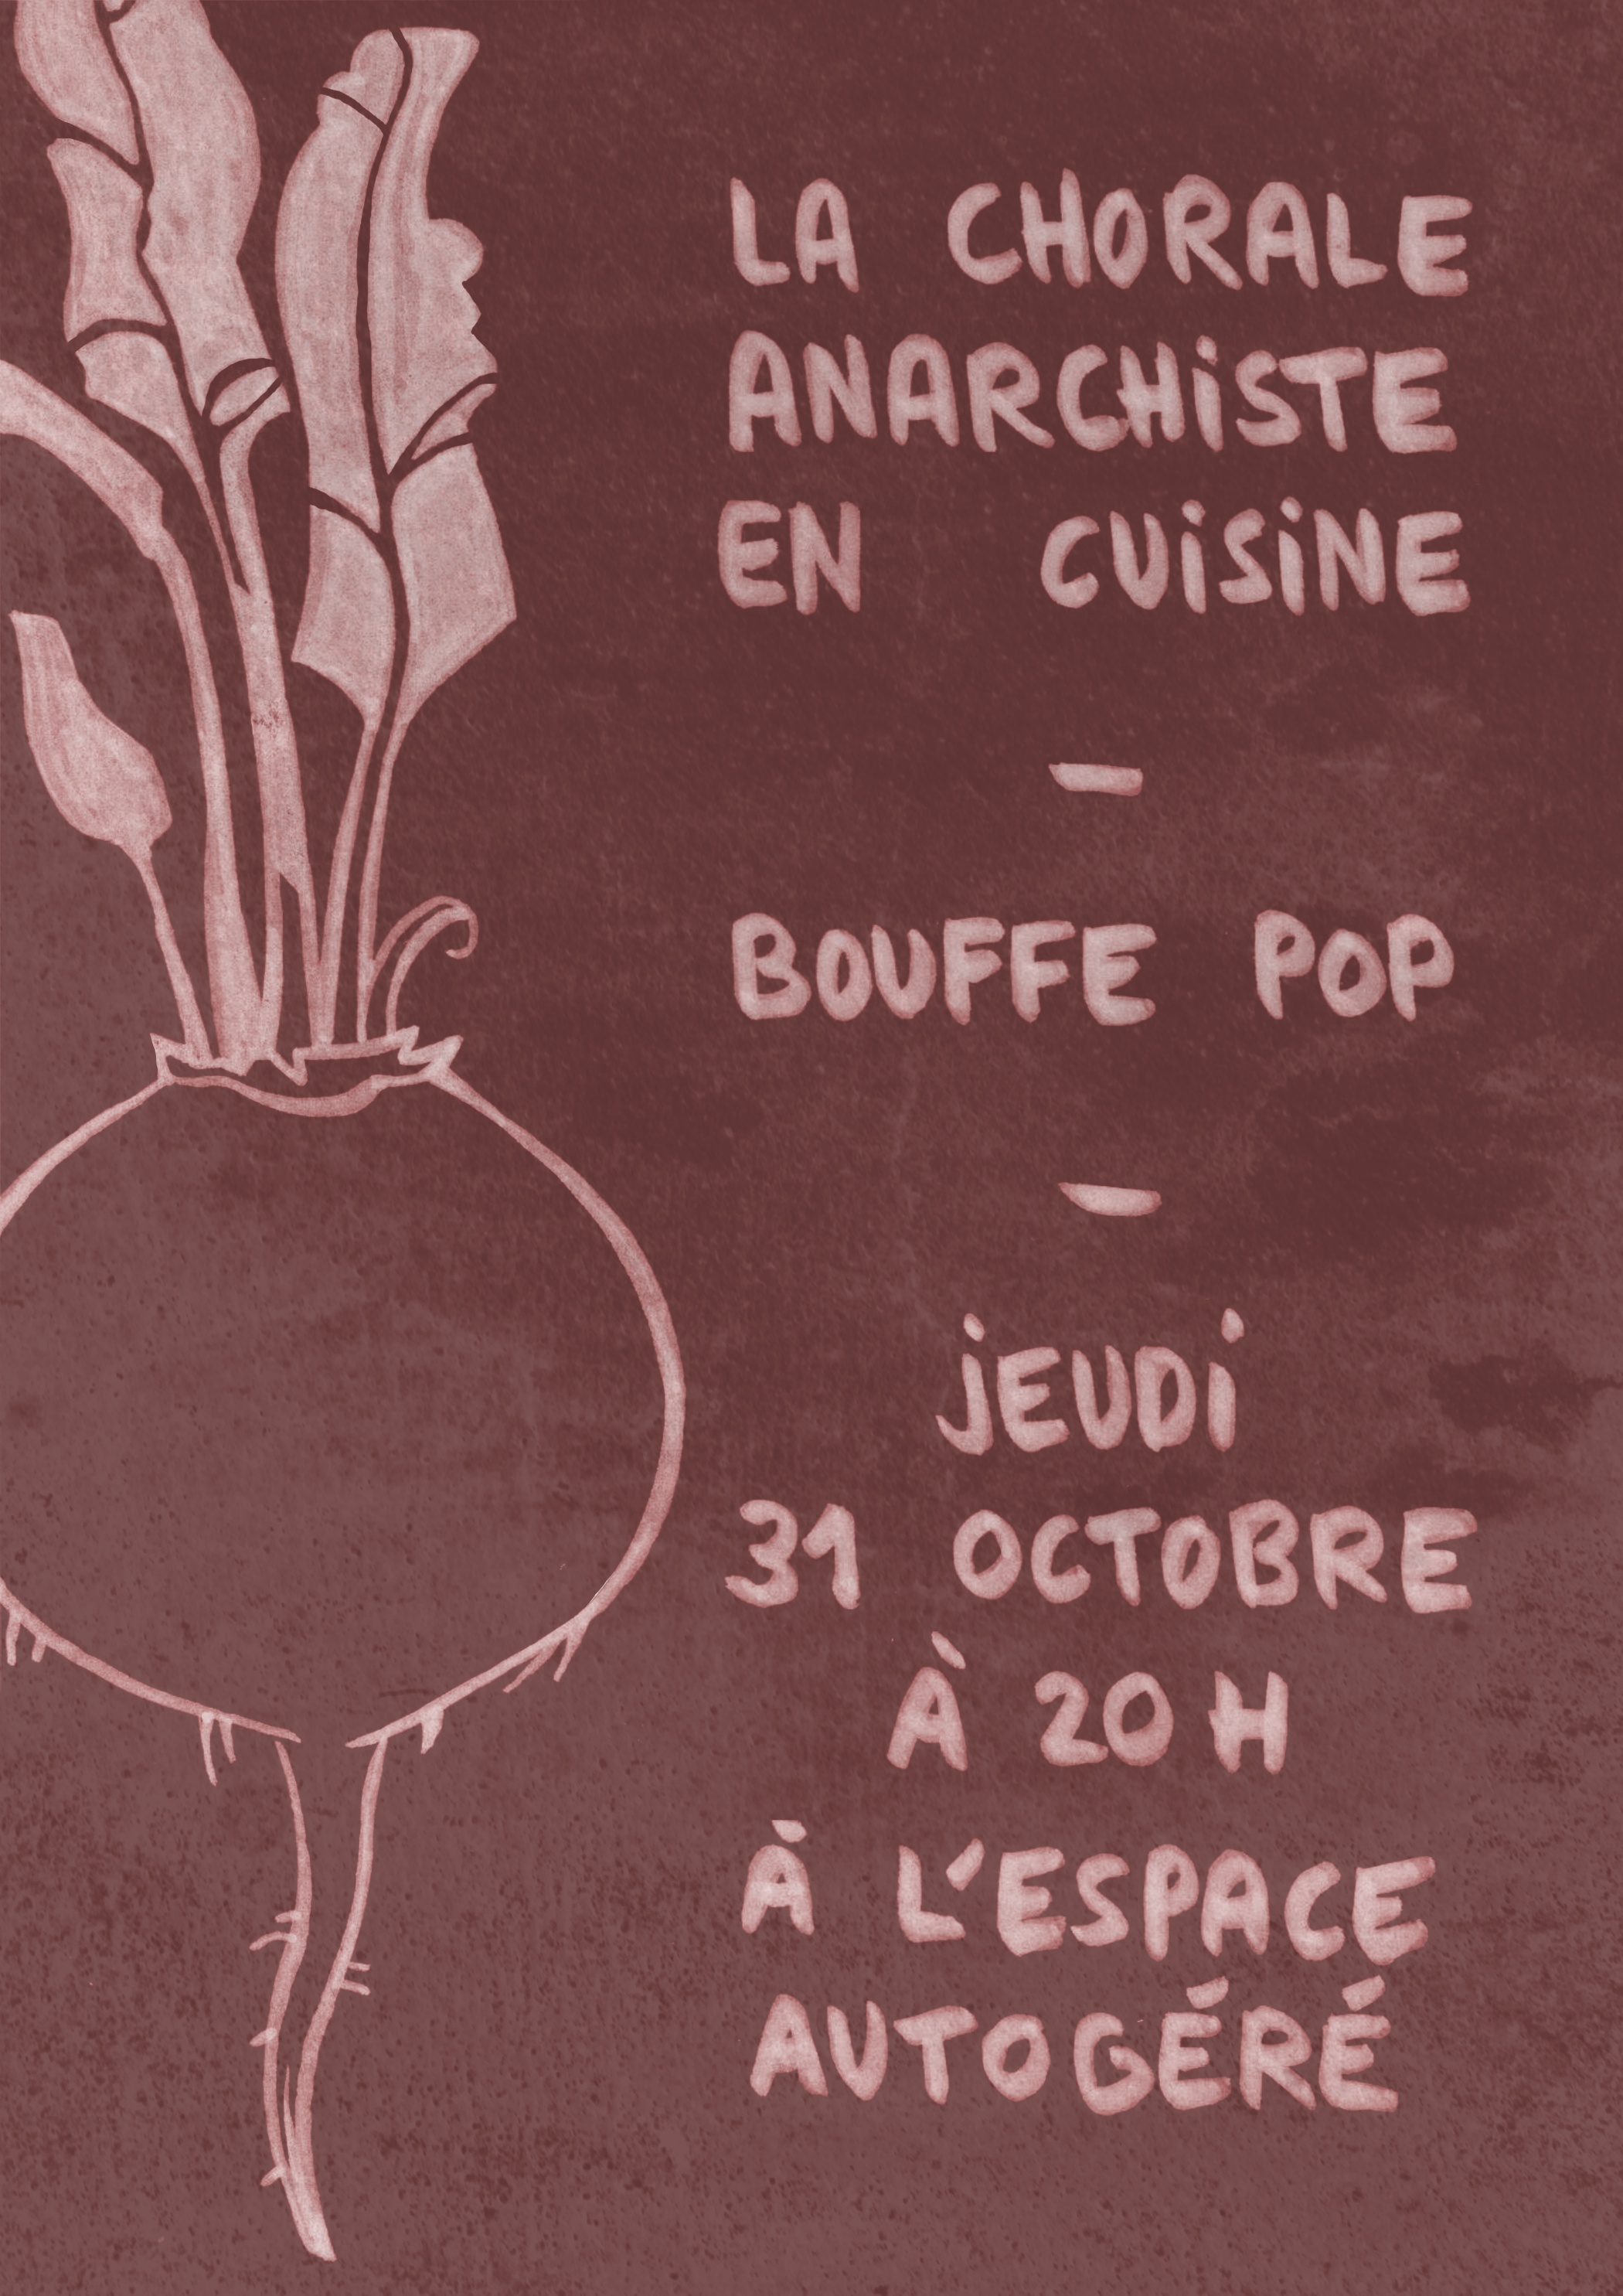 LA CHORALE
ANARCHiSTE
EN CUiSiNE
–
BOUFFE POP
–
jEUDi
31 OCTOBRE
À 20 H
À L'ESPACE
AUTOGÉRÉ